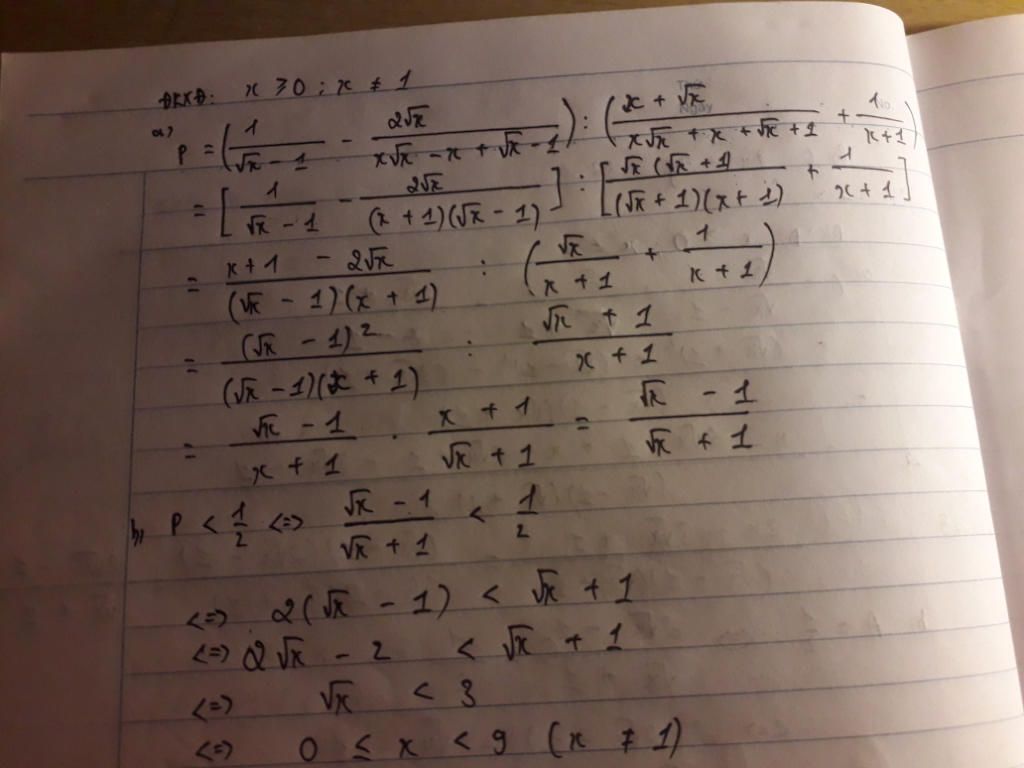 ĐKXĐ: x ≥ 0 ; x ≠ 1
a, P = (1/(√x - 1) - 2√x/(x√x - x + √x - 1)) : ((x + √x)/(x√x + x + √x + 1) + 1/(x + 1))
= [1/(√x - 1) - 2√x/((x + 1)(√x - 1))] : [√x(√x + 1)/((√x + 1)(x + 1)) + 1/(x + 1)]
= (x + 1 - 2√x)/((√x - 1)(x + 1)) : (√x/(x + 1) + 1/(x + 1))
= (√x - 1)²/((√x - 1)(x + 1)) : (√x + 1)/(x + 1)
= (√x - 1)/(x + 1) . (x + 1)/(√x + 1) = (√x - 1)/(√x + 1)
b, P < 1/2 <=> (√x - 1)/(√x + 1) < 1/2
<=> 2(√x - 1) < √x + 1
<=> 2√x - 2 < √x + 1
<=> √x < 3
<=> 0 ≤ x < 9 (x ≠ 1)